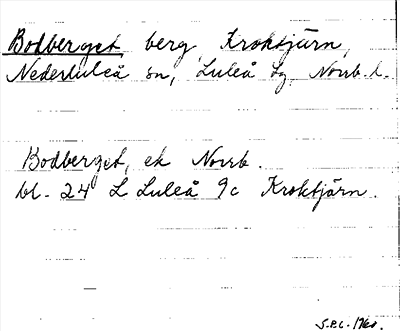 Bodberget, berg, Kroktjärn,
Nederluleå sn, Luleå tg, Norrb. l.
Bodberget, ek Norrb.
bl. 24 L Luleå 9c Kroktjärn.
S.P.L. 1960.